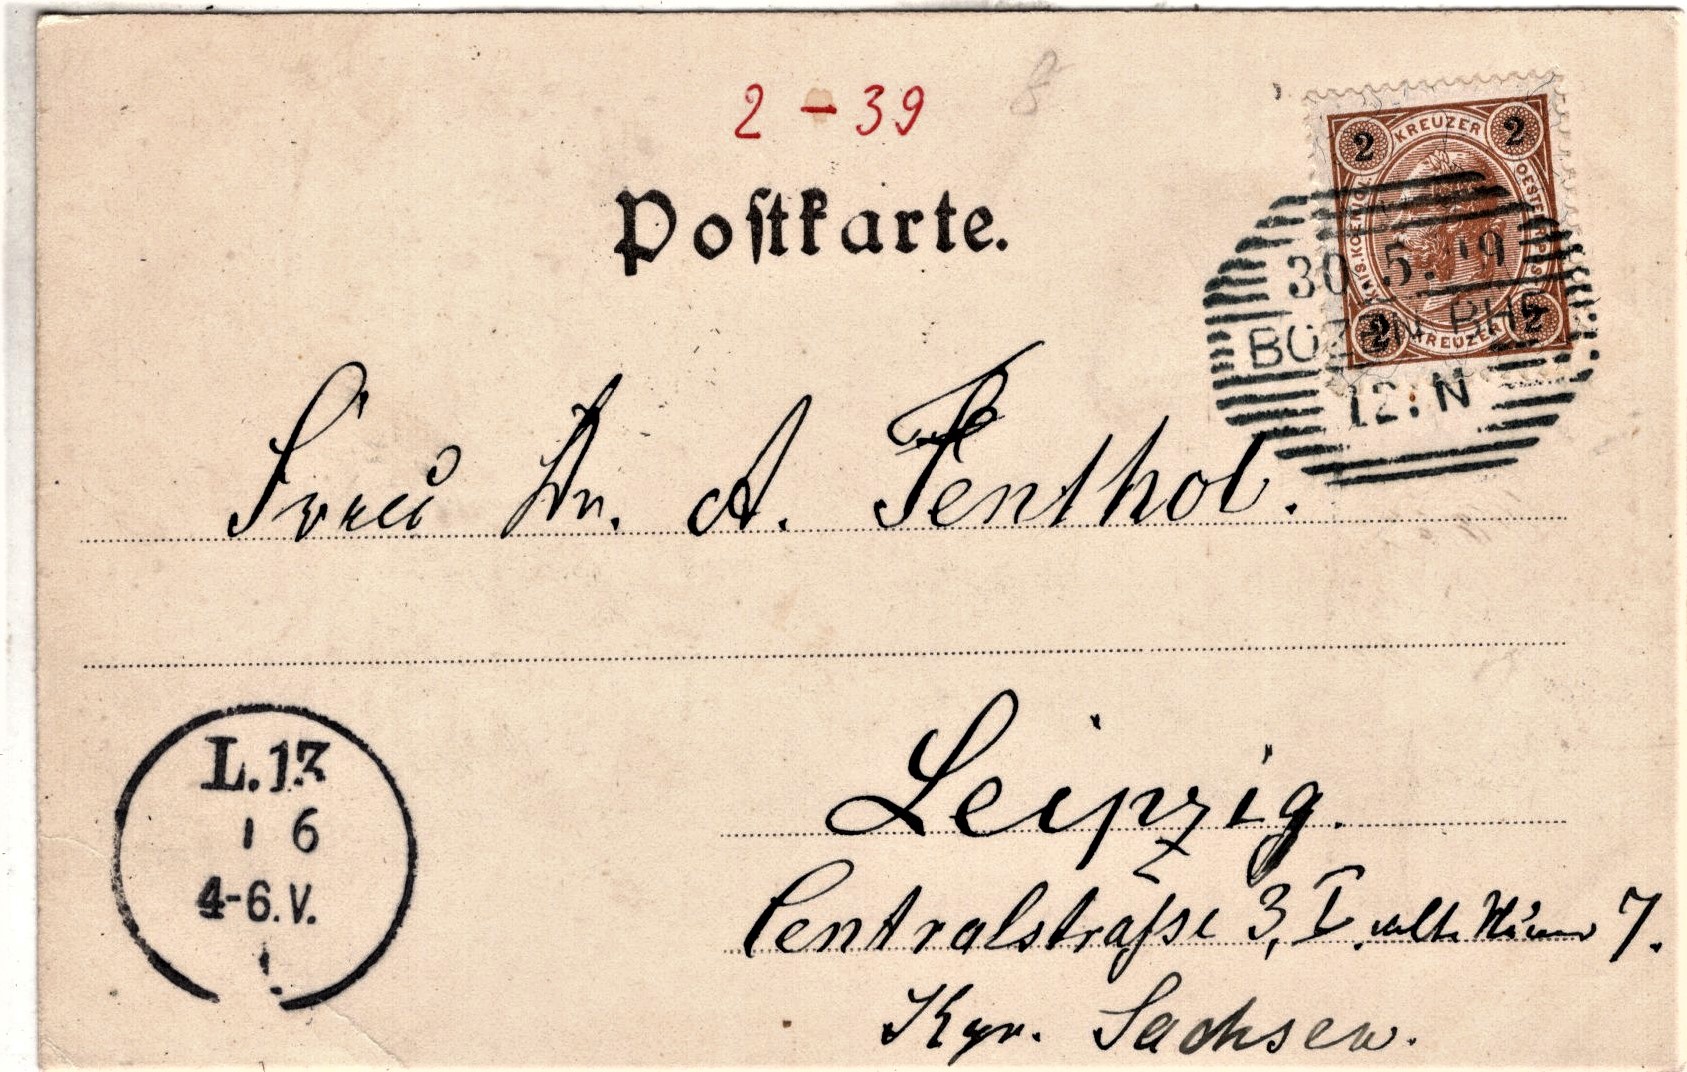 2 – 39
8
Poſtkarte.
2 KREUZER 2
KAIS. KOENIGL.
2 KREUZER 2
30 5. 99
BOZEN BHF
12. N
Frau Dr. A. Penthol.
Leipzig.
Centralstraße 3, I. 7.
Kgr. Sachsen.
L. 13
1 6
4-6. V.